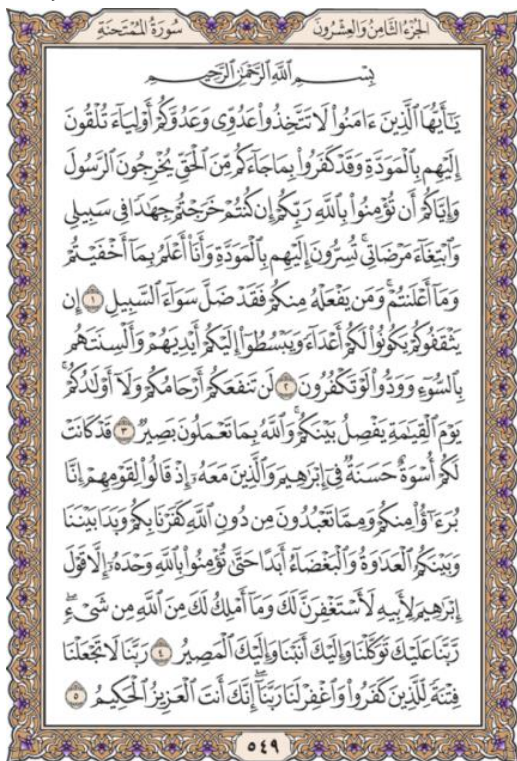 الجزء الثامن والعشرون
سورة الممتحنة
بِسْمِ اللَّهِ الرَّحْمَٰنِ الرَّحِيمِ
يَٰٓأَيُّهَا ٱلَّذِينَ ءَامَنُوا۟ لَا تَتَّخِذُوا۟ عَدُوِّى وَعَدُوَّكُمْ أَوْلِيَآءَ تُلْقُونَ
إِلَيْهِم بِٱلْمَوَدَّةِ وَقَدْ كَفَرُوا۟ بِمَا جَآءَكُم مِّنَ ٱلْحَقِّ يُخْرِجُونَ ٱلرَّسُولَ
وَإِيَّاكُمْ أَن تُؤْمِنُوا۟ بِٱللَّهِ رَبِّكُمْ إِن كُنتُمْ خَرَجْتُمْ جِهَٰدًا فِى سَبِيلِى
وَٱبْتِغَآءَ مَرْضَاتِى تُسِرُّونَ إِلَيْهِم بِٱلْمَوَدَّةِ وَأَنَا۠ أَعْلَمُ بِمَآ أَخْفَيْتُمْ
وَمَآ أَعْلَنتُمْ وَمَن يَفْعَلْهُ مِنكُمْ فَقَدْ ضَلَّ سَوَآءَ ٱلسَّبِيلِ ١ إِن
يَثْقَفُوكُمْ يَكُونُوا۟ لَكُمْ أَعْدَآءً وَيَبْسُطُوٓا۟ إِلَيْكُمْ أَيْدِيَهُمْ وَأَلْسِنَتَهُم
بِٱلسُّوٓءِ وَوَدُّوا۟ لَوْ تَكْفُرُونَ ٢ لَن تَنفَعَكُمْ أَرْحَامُكُمْ وَلَآ أَوْلَٰدُكُمْ
يَوْمَ ٱلْقِيَٰمَةِ يَفْصِلُ بَيْنَكُمْ وَٱللَّهُ بِمَا تَعْمَلُونَ بَصِيرٌ ٣ قَدْ كَانَتْ
لَكُمْ أُسْوَةٌ حَسَنَةٌ فِىٓ إِبْرَٰهِيمَ وَٱلَّذِينَ مَعَهُۥٓ إِذْ قَالُوا۟ لِقَوْمِهِمْ إِنَّا
بُرَءَٰٓؤُا۟ مِنكُمْ وَمِمَّا تَعْبُدُونَ مِن دُونِ ٱللَّهِ كَفَرْنَا بِكُمْ وَبَدَا بَيْنَنَا
وَبَيْنَكُمُ ٱلْعَدَٰوَةُ وَٱلْبَغْضَآءُ أَبَدًا حَتَّىٰ تُؤْمِنُوا۟ بِٱللَّهِ وَحْدَهُۥٓ إِلَّا قَوْلَ
إِبْرَٰهِيمَ لِأَبِيهِ لَأَسْتَغْفِرَنَّ لَكَ وَمَآ أَمْلِكُ لَكَ مِنَ ٱللَّهِ مِن شَىْءٍ ۖ
رَّبَّنَا عَلَيْكَ تَوَكَّلْنَا وَإِلَيْكَ أَنَبْنَا وَإِلَيْكَ ٱلْمَصِيرُ ٤ رَبَّنَا لَا تَجْعَلْنَا
فِتْنَةً لِّلَّذِينَ كَفَرُوا۟ وَٱغْفِرْ لَنَا رَبَّنَآ ۖ إِنَّكَ أَنتَ ٱلْعَزِيزُ ٱلْحَكِيمُ ٥
٥٤٩